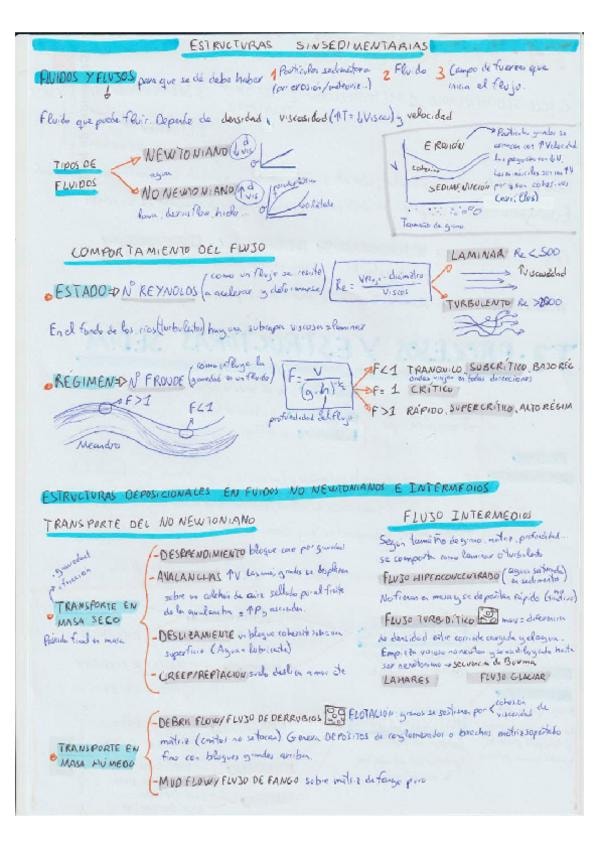 ESTRUCTURAS SINSEDIMENTARIAS
FLUIDOS Y FLUJOS para que se dé debe haber 1 Partículas sedimentaria 2 Fluido 3 Campo de fuerzas que
(por erosión/meteoriz...) inicia el flujo.
Fluido que puede fluir. Depende de densidad, viscosidad (↑T=↓Viscos) y velocidad
TIPOS DE
FLUIDOS
NEWTONIANO ↓d ↓vis
agua
NO NEWTONIANO ↑d ↑vis
lava, derris flow, hielo...
pseudoplástico
dilatante
V
EROSIÓN
Cohesivo
SEDIMENTACIÓN
Tamaño de grano
Partículas grandes se
erosionan con ↑Velocidad
Las pequeñas con ↓V.
Las minúsculas son ↑V
porque son cohesivas
(arcillas)
COMPORTAMIENTO DEL FLUJO
ESTADO ⇒ Nº REYNOLDS (como un flujo se resiste
a acelerar y deformarse)
Re = diámetro
viscos
LAMINAR Re < 500
↑Viscosidad
TURBULENTO Re > 2000
En el fondo de los ríos (turbulento) hay una subcapa viscosa o laminar
RÉGIMEN ⇒ Nº FROUDE (como influye la
gravedad en un fluido)
F = V
(g·h)^1/2
profundidad del flujo
F<1 TRANQUILO, SUBCRÍTICO, BAJO RÉG
ondas viajan en todas direcciones
F=1 CRÍTICO
F>1 RÁPIDO, SUPERCRÍTICO, ALTO RÉGIM
F>1
F<1
Meandro
ESTRUCTURAS DEPOSICIONALES EN FUIDOS NO NEWTONIANOS E INTERMEDIOS
TRANSPORTE DEL NO NEWTONIANO
·gravedad
·fricción
TRANSPORTE EN
MASA SECO
final en masa
DESPRENDIMIENTO bloque cae por gravedad
AVALANCHAS ↑V grandes se desplazan
sobre un colchón de aire sellado por al frente
de la avalancha = ↑P y ascienden.
DESLIZAMIENTO un bloque cohesivo sobre una
superficie (Agua = lubricada)
CREEP/REPTACIÓN suelo desliza a mov. cte
TRANSPORTE EN
MASA HÚMEDO
DEBRIS FLOW/FLUJO DE DERRUBIOS FLOTACIÓN granos se sostienen por cohesión
viscosidad de
matriz (cantos no se tocan) Genera DEPÓSITOS de conglomerados o brechas matriz soportado
fino con bloques grandes arriba.
MUD FLOW/FLUJO DE FANGO sobre matriz de fango puro
FLUJO INTERMEDIOS
Según tamaño de grano, matriz, profundidad...
se comporta como laminar o turbulento
FLUJO HIPERCONCENTRADO (agua saturada
en sedimento)
No fluyen en masa y se deposita rápido
FLUJO TURBIDÍTICO mov = diferencia
de densidad entre corriente cargada y el agua.
Empieza
ser newtoniano → secuencia de Bouma
LAHARES FLUJO GLACIAR